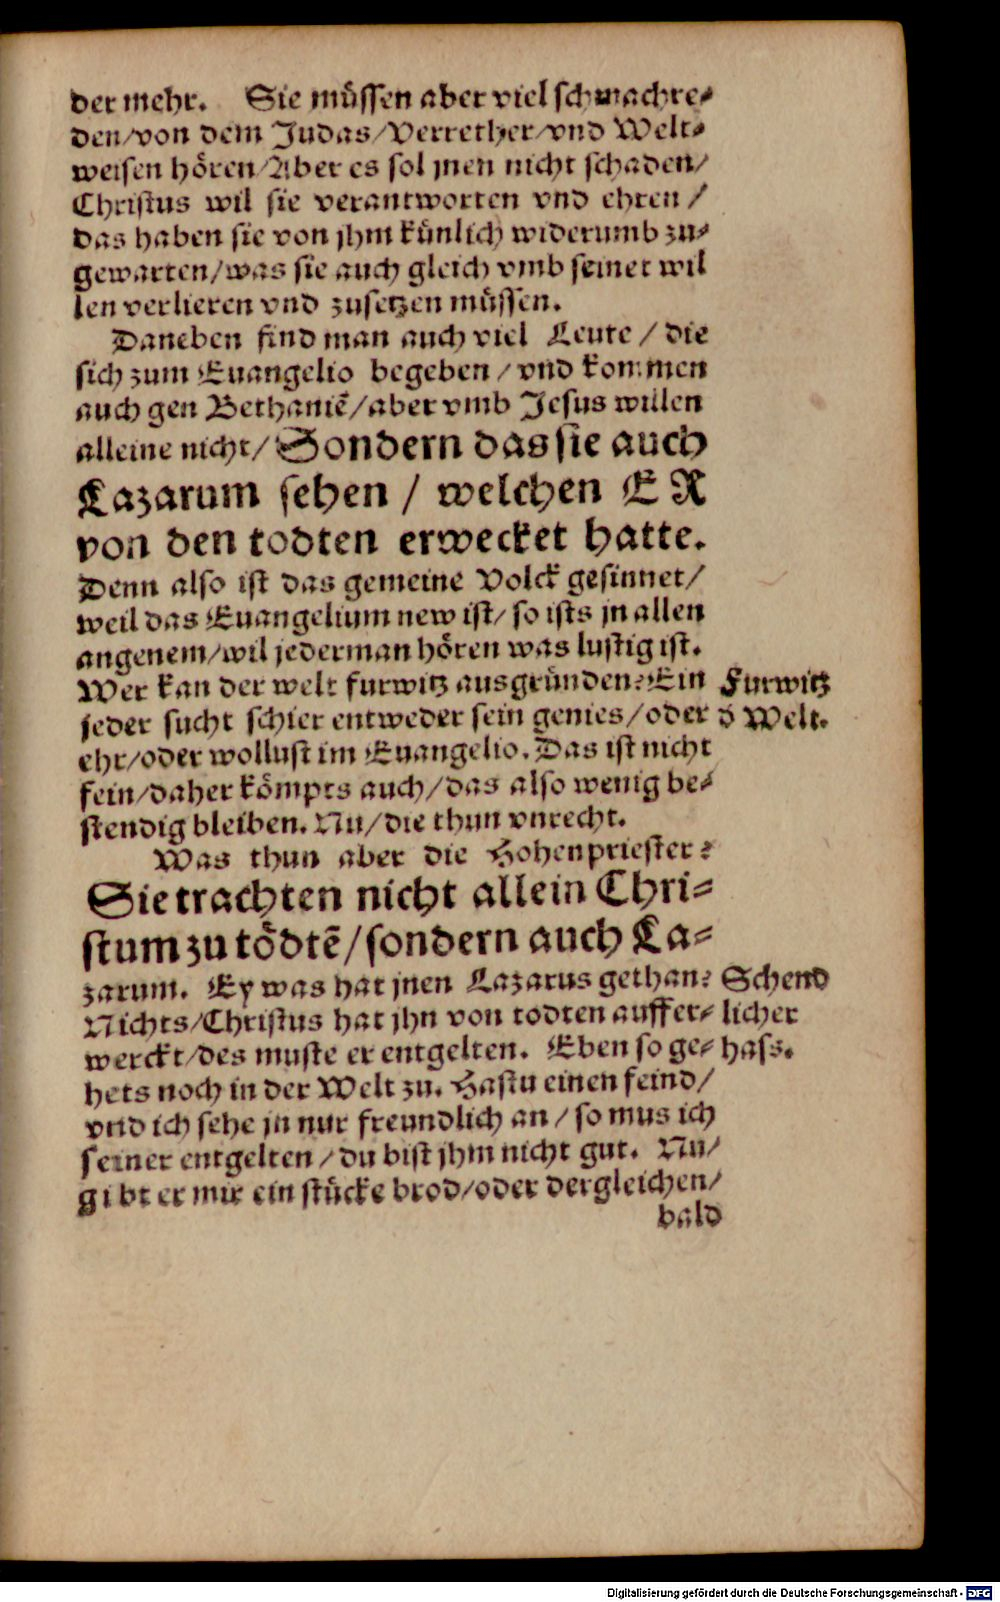 der mehr. Sie müssen aber viel schmachre⸗
den/von dem Judas/Verrether/vnd Welt⸗
weisen hören/Aber es sol jnen nicht schaden/
Christus wil sie verantworten vnd ehren/
das haben sie von jhm künlich widerumb zu⸗
gewarten/was sie auch gleich vmb seinet wil
len verlieren vnd zusetzen müssen.
Daneben find man auch viel Leute/die
sich zum Euangelio begeben/vnd kommen
auch gen Bethaniē/aber vmb Jesus willen
alleine nicht/Sondern das sie auch
Lazarum sehen/welchen ER
von den todten erwecket hatte.
Denn also ist das gemeine Volck gesinnet/
weil das Euangelium new ist/so ists jn allen
angenem/wil jederman hören was lustig ist.
Wer kan der welt furwitz ausgründen? Ein
Furwitz
jeder sucht schier entweder sein genies/oder
d̄ Welt.
ehr/oder wollust im Euangelio. Das ist nicht
fein/daher kömpts auch/das also wenig be⸗
stendig bleiben. Nu/die thun vnrecht.
Was thun aber die Hohenpriester?
Sie trachten nicht allein Chri⸗
stum zu tödtē/sondern auch La⸗
zarum. Ey was hat jnen Lazarus gethan?
Schend
Nichts/Christus hat jhn von todten auffer⸗
licher
werckt/des muste er entgelten. Eben so ge⸗
hass.
hets noch in der Welt zu. Hastu einen feind/
vnd ich sehe jn nur freundlich an/so mus ich
seiner entgelten/du bist jhm nicht gut. Nu/
gibt er mir ein stücke brod/oder dergleichen/
bald
Digitalisierung gefördert durch die Deutsche Forschungsgemeinschaft - DFG